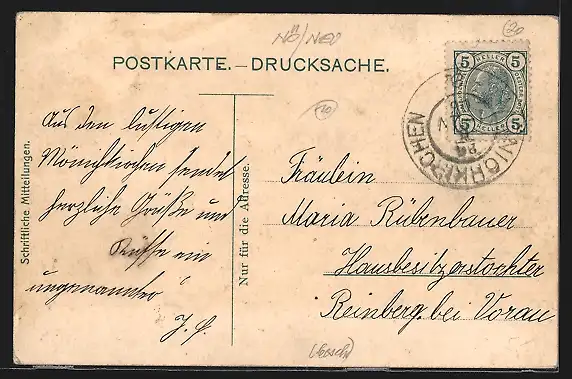 NÖ/NEU
20
POSTKARTE. – DRUCKSACHE.
5 HELLER 5
5 HELLER 5
MÖNICHKIRCHEN
10
Schriftliche Mitteilungen.
Aus den luftigen
Mönichkirchen sendet
herzliche Grüße und
Küsse ein
ungenannter
J. G.
Nur für die Adresse.
Fräulein
Maria Rübenbauer
Hausbesitzerstochter
Reinberg bei Vorau